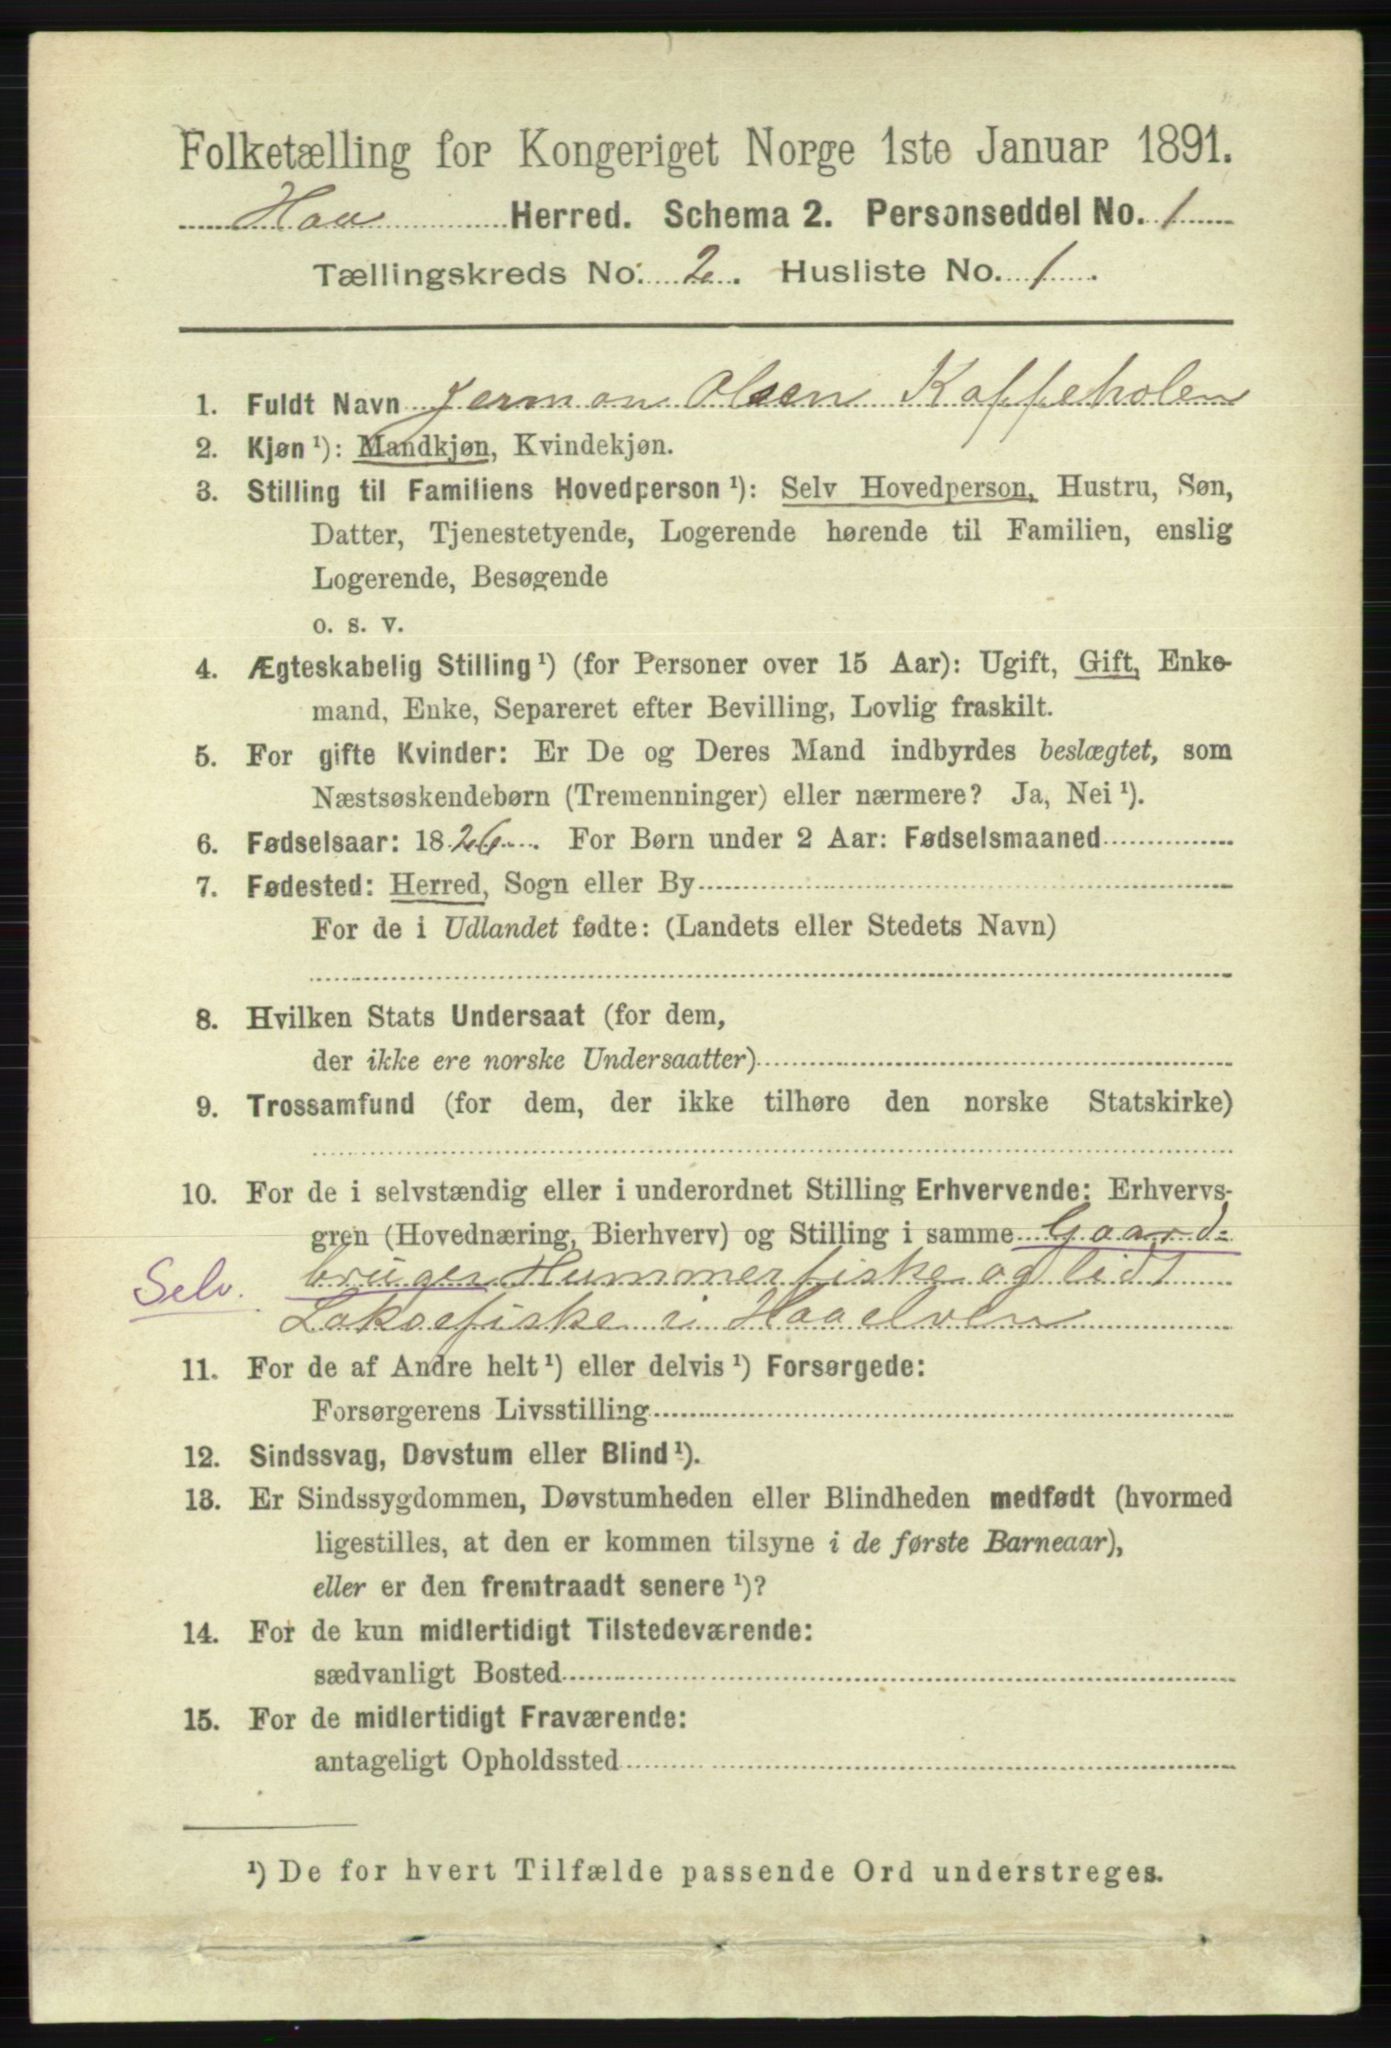 Folketælling for Kongeriget Norge 1ste Januar 1891.
Haa Herred. Schema 2. Personseddel No. 1
Tællingskreds No. 2. Husliste No. 1.
1. Fuldt Navn Jerman Olsen Kaffeholen
2. Kjøn ¹): Mandkjøn, Kvindekjøn.
3. Stilling til Familiens Hovedperson ¹): Selv Hovedperson, Hustru, Søn,
Datter, Tjenestetyende, Logerende hørende til Familien, enslig
Logerende, Besøgende
o. s. v.
4. Ægteskabelig Stilling ¹) (for Personer over 15 Aar): Ugift, Gift, Enke-
mand, Enke, Separeret efter Bevilling, Lovlig fraskilt.
5. For gifte Kvinder: Er De og Deres Mand indbyrdes beslægtet, som
Næstsøskendebørn (Tremenninger) eller nærmere? Ja, Nei ¹).
6. Fødselsaar: 1826. For Børn under 2 Aar: Fødselsmaaned
7. Fødested: Herred, Sogn eller By
For de i Udlandet fødte: (Landets eller Stedets Navn)
8. Hvilken Stats Undersaat (for dem,
der ikke ere norske Undersaatter)
9. Trossamfund (for dem, der ikke tilhøre den norske Statskirke)
10. For de i selvstændig eller i underordnet Stilling Erhvervende: Erhvervs-
gren (Hovednæring, Bierhverv) og Stilling i samme Gaard-
Selv. bruger Hummerfiske og lidt
Laksefiske i Haaelven
11. For de af Andre helt ¹) eller delvis ¹) Forsørgede:
Forsørgerens Livsstilling
12. Sindssvag, Døvstum eller Blind ¹).
13. Er Sindssygdommen, Døvstumheden eller Blindheden medfødt (hvormed
ligestilles, at den er kommen tilsyne i de første Barneaar),
eller er den fremtraadt senere ¹)?
14. For de kun midlertidigt Tilstedeværende:
sædvanligt Bosted
15. For de midlertidigt Fraværende:
antageligt Opholdssted
¹) De for hvert Tilfælde passende Ord understreges.